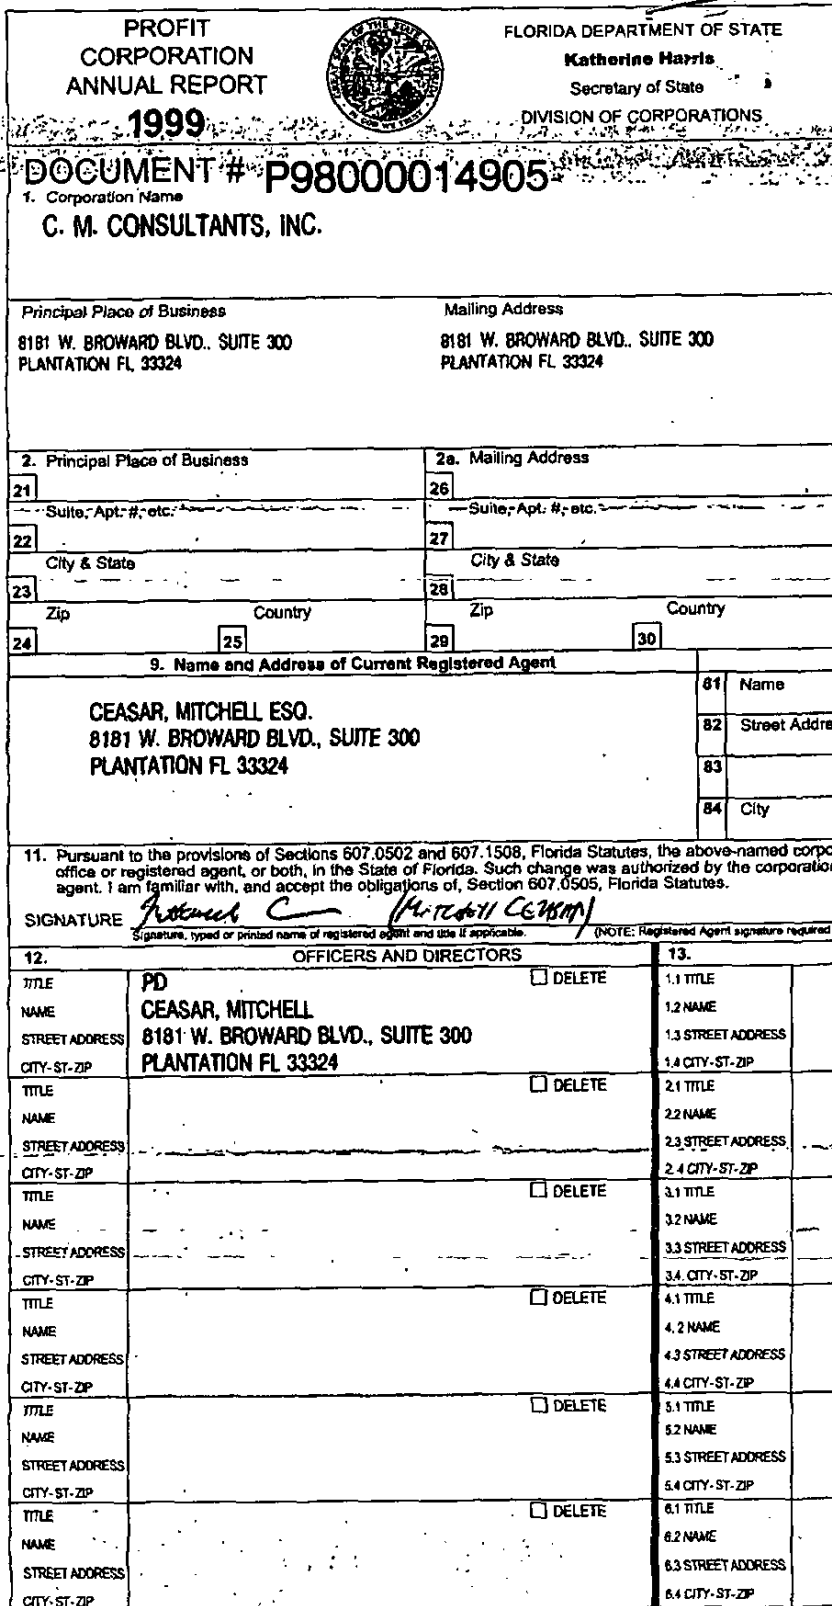 PROFIT
CORPORATION
ANNUAL REPORT
1999
GREAT SEAL OF THE STATE OF FLORIDA
IN GOD WE TRUST
FLORIDA DEPARTMENT OF STATE
Katherine Harris
Secretary of State
DIVISION OF CORPORATIONS
DOCUMENT # P98000014905
1. Corporation Name
C. M. CONSULTANTS, INC.
Principal Place of Business
Mailing Address
8181 W. BROWARD BLVD., SUITE 300
PLANTATION FL 33324
8181 W. BROWARD BLVD., SUITE 300
PLANTATION FL 33324
2. Principal Place of Business
2a. Mailing Address
21
26
Suite, Apt. #, etc.
Suite, Apt. #, etc.
22
27
City & State
City & State
23
28
Zip Country
Zip Country
24 25
29 30
9. Name and Address of Current Registered Agent
CEASAR, MITCHELL ESQ.
8181 W. BROWARD BLVD., SUITE 300
PLANTATION FL 33324
81 Name
82 Street Addre
83
84 City
11. Pursuant to the provisions of Sections 607.0502 and 607.1508, Florida Statutes, the above-named corpo
office or registered agent, or both, in the State of Florida. Such change was authorized by the corporation
agent. I am familiar with, and accept the obligations of, Section 607.0505, Florida Statutes.
SIGNATURE (MITCHELL CEASAR)
Signature, typed or printed name of registered agent and title if applicable. (NOTE: Registered Agent signature required
12. OFFICERS AND DIRECTORS 13.
TITLE PD DELETE
NAME CEASAR, MITCHELL
STREET ADDRESS 8181 W. BROWARD BLVD., SUITE 300
CITY-ST-ZIP PLANTATION FL 33324
1.1 TITLE
1.2 NAME
1.3 STREET ADDRESS
1.4 CITY-ST-ZIP
TITLE DELETE
NAME
STREET ADDRESS
CITY-ST-ZIP
2.1 TITLE
2.2 NAME
2.3 STREET ADDRESS
2.4 CITY-ST-ZIP
TITLE DELETE
NAME
STREET ADDRESS
CITY-ST-ZIP
3.1 TITLE
3.2 NAME
3.3 STREET ADDRESS
3.4. CITY-ST-ZIP
TITLE DELETE
NAME
STREET ADDRESS
CITY-ST-ZIP
4.1 TITLE
4.2 NAME
4.3 STREET ADDRESS
4.4 CITY-ST-ZIP
TITLE DELETE
NAME
STREET ADDRESS
CITY-ST-ZIP
5.1 TITLE
5.2 NAME
5.3 STREET ADDRESS
5.4 CITY-ST-ZIP
TITLE DELETE
NAME
STREET ADDRESS
CITY-ST-ZIP
6.1 TITLE
6.2 NAME
6.3 STREET ADDRESS
6.4 CITY-ST-ZIP